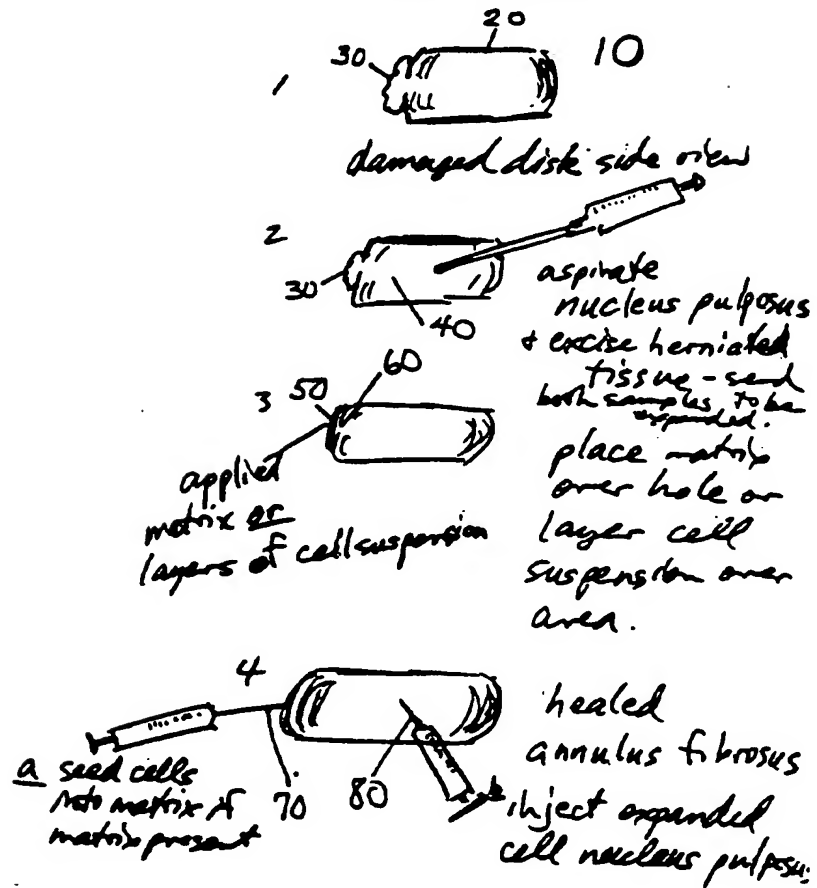 20
10
30
1
damaged disk side view
2
30
40
aspirate
nucleus pulposus
+ excise herniated
tissue - send
both samples to be
expanded.
3
50
60
applied
matrix or
layers of cell suspension
place matrix
over hole or
layer cell
suspension over
area.
4
a seed cells
into matrix if
matrix present
70
80
healed
annulus fibrosus
inject expanded
cell nucleus pulposus